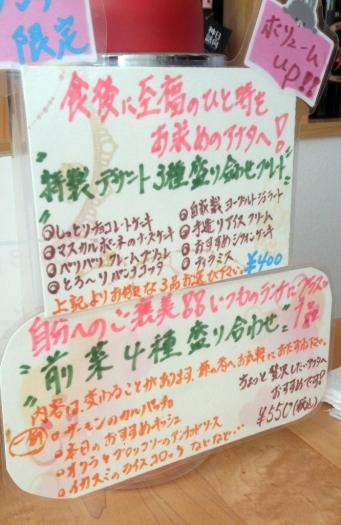 限定
ボリューム
up!!
食後に至福のひと時を
お求めのアナタへ!
"特製デザート3種盛り合わせプレート"
しっとりチョコレートケーキ
マスカルポーネのチーズケーキ
パリパリクレームブリュレ
とろ〜りパンナコッタ
自家製ヨーグルトジェラート
手造りアイスクリーム
おすすめシフォンケーキ
ティラミス
上記よりお好きな3品お選び下さい。 ¥400
自分へのご褒美 いつものランチにプラス
1品
"前菜4種盛り合わせ"
内容は、変わることがあります、
ちょっと贅沢したいアナタへ
おすすめです♡
¥550(税込)
例
・サーモンのカルパッチョ
・本日のおすすめキッシュ
・オクラとブロッコリーのアンチョビソース
・イカスミのライスコロッケ などなど…